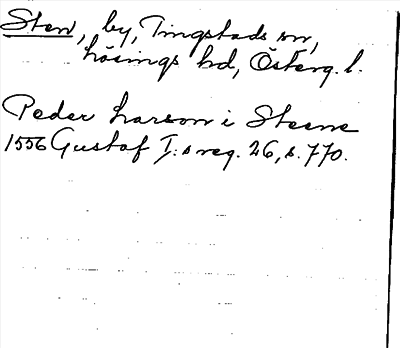 Sten, by, Tingstads sn,
Lösings hd, Österg. l.
Peder Larson i Steene
1556 Gustaf I:s reg. 26, s. 770.